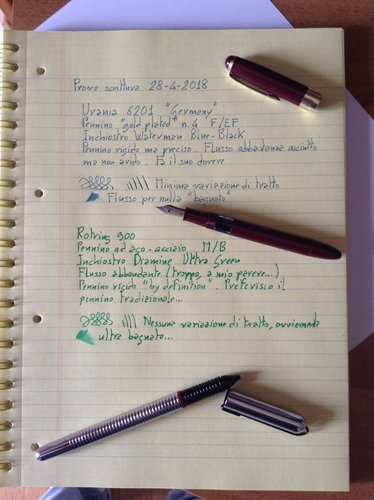 Prove scrittura 28-4-2018
Urania 6201 "Germany"
Pennino "gold plated" n.4 F/EF
Inchiostro Waterman Blue-Black
Pennino rigido ma preciso. Flusso abbastanza asciutto
ma non arido. Fa il suo dovere
Minima variazione di tratto
Flusso per nulla "bagnato"
Rotring 900
Pennino ad ago - acciaio M/B
Inchiostro Diamine Ultra Green
Flusso abbondante (troppo, a mio parere...)
Pennino rigido "by definition". Preferisco il
pennino tradizionale...
Nessuna variazione di tratto, ovviamente
ultra bagnato...